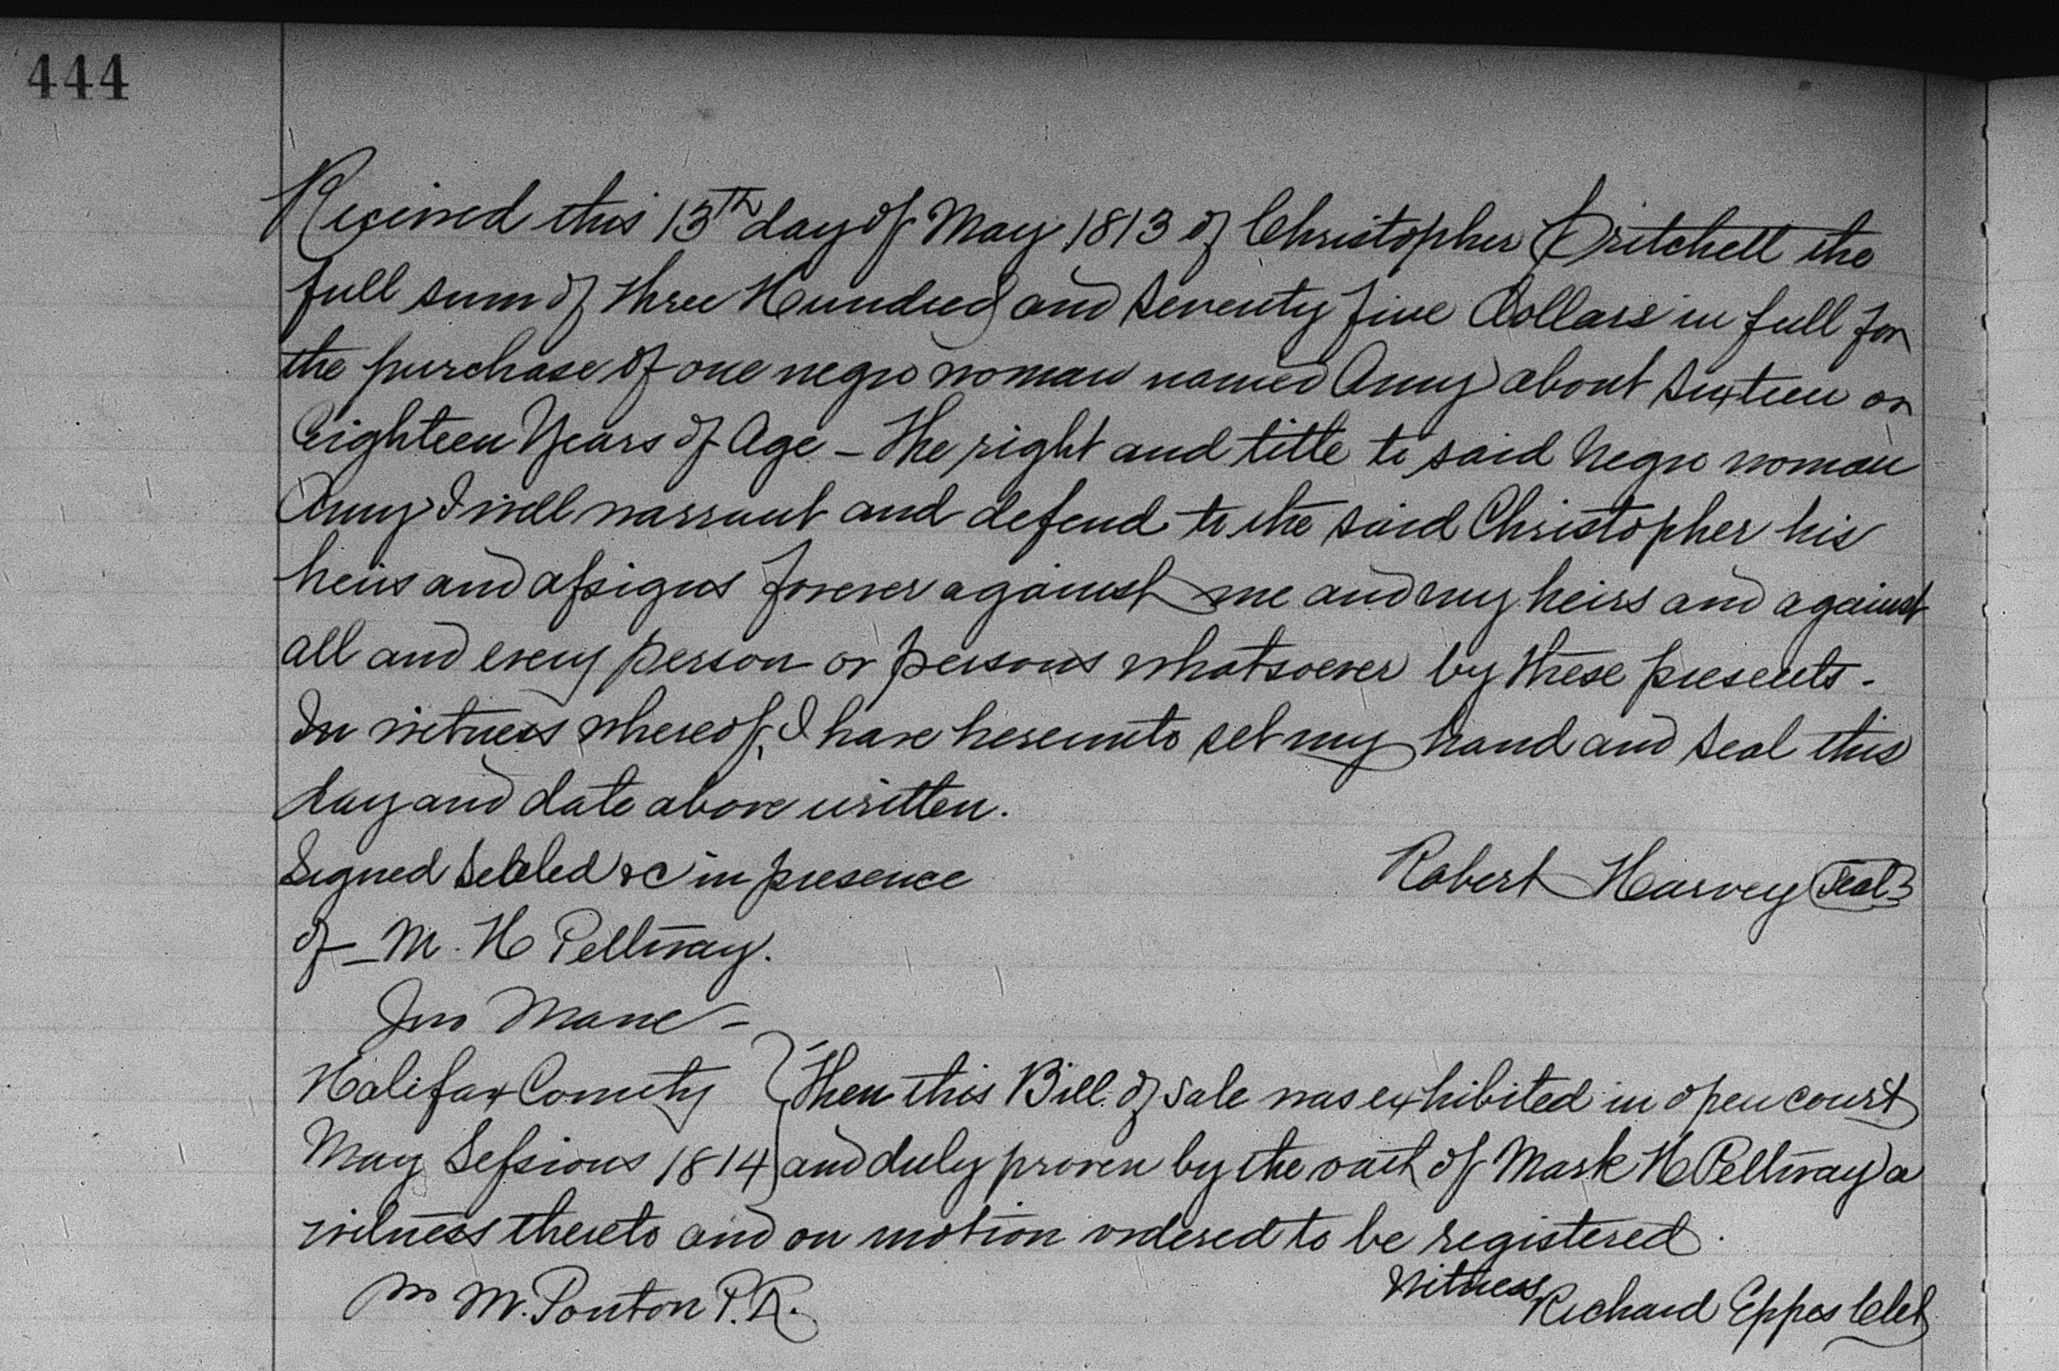 444
Received this 13th day of May 1813 of Christopher Pritchett the
full sum of three Hundred and seventy five Dollars in full for
the purchase of one negro woman named Anny about sixteen or
Eighteen Years of Age - The right and title to said Negro woman
Anny I will warrant and defend to the said Christopher his
heirs and assigns forever against me and my heirs and against
all and every person or persons whatsoever by these presents -
In witness whereof, I have hereunto set my hand and seal this
day and date above written.
Signed sealed &c in presence Robert Harvey Seal
of - M. H Pettway.
Jno Mane -
Halifax County } Then this Bill of sale was exhibited in open court
May Sessions 1814 } and duly proven by the oath of Mark H Pettway a
witness thereto and on motion ordered to be registered.
Witness
M. Ponton P.R. Richard Eppes Clek